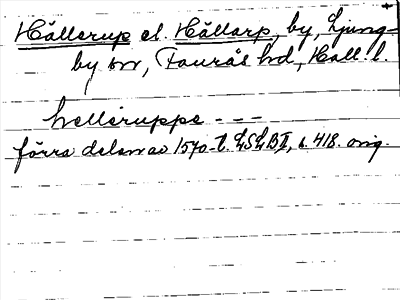 Hällerup el. Hällarp, by, Ljung-
by sn, Faurås hd, Hall. l.
helleruppe - - -
förra delen av 1570-t. LSLB II, s. 418. orig.